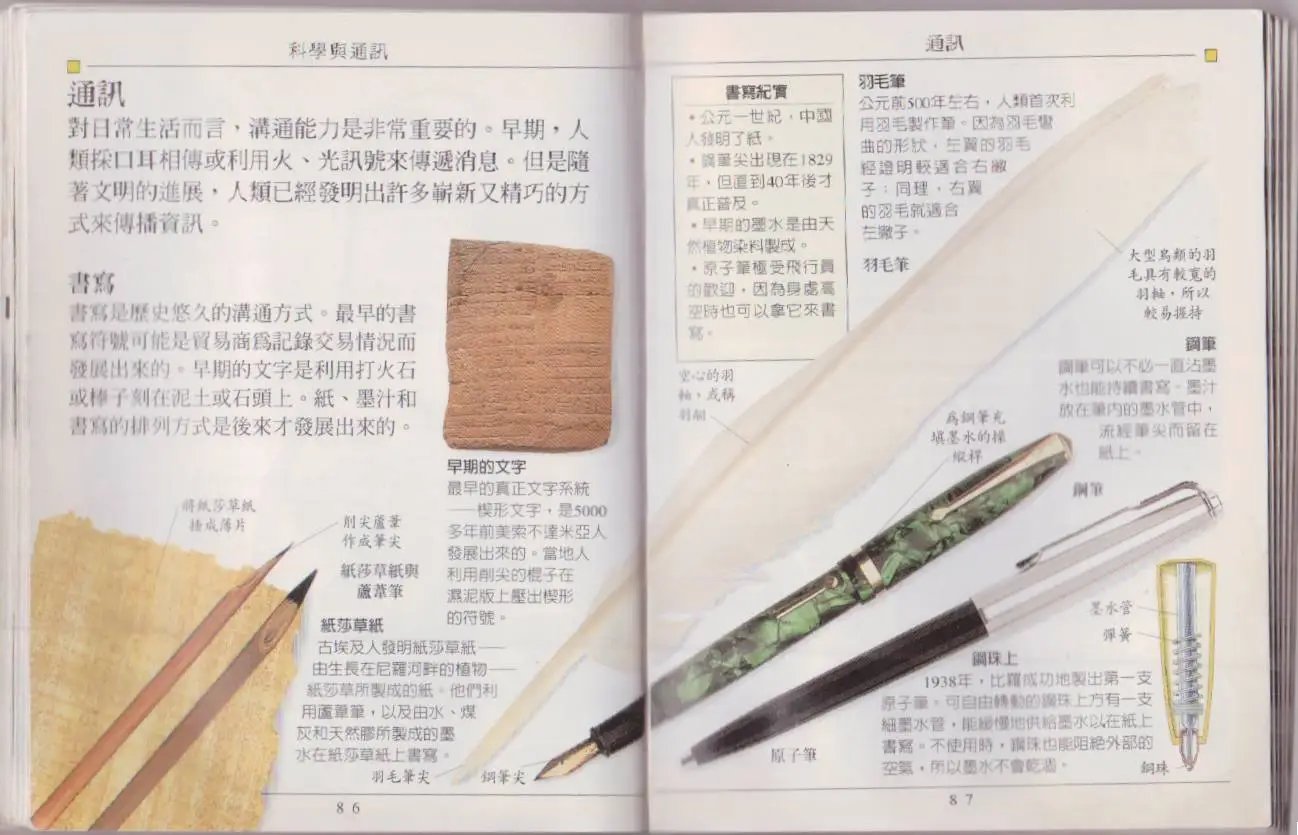 科學與通訊
通訊
對日常生活而言，溝通能力是非常重要的。早期，人
類採口耳相傳或利用火、光訊號來傳遞消息。但是隨
著文明的進展，人類已經發明出許多嶄新又精巧的方
式來傳播資訊。
書寫
書寫是歷史悠久的溝通方式。最早的書
寫符號可能是貿易商為記錄交易情況而
發展出來的。早期的文字是利用打火石
或棒子刻在泥土或石頭上。紙、墨汁和
書寫的排列方式是後來才發展出來的。
早期的文字
最早的真正文字系統
——楔形文字，是5000
多年前美索不達米亞人
發展出來的。當地人
利用削尖的棍子在
濕泥版上壓出楔形
的符號。
將紙莎草紙
搥成薄片
削尖蘆葦
作成筆尖
紙莎草紙與
蘆葦筆
紙莎草紙
古埃及人發明紙莎草紙——
由生長在尼羅河畔的植物——
紙莎草所製成的紙。他們利
用蘆葦筆，以及由水、煤
灰和天然膠所製成的墨
水在紙莎草紙上書寫。
羽毛筆尖
鋼筆尖
86
通訊
書寫紀實
•公元一世紀，中國
人發明了紙。
•鋼筆尖出現在1829
年，但直到40年後才
真正普及。
•早期的墨水是由天
然植物染料製成。
•原子筆極受飛行員
的歡迎，因為身處高
空時也可以拿它來書
寫。
羽毛筆
公元前500年左右，人類首次利
用羽毛製作筆。因為羽毛彎
曲的形狀，左翼的羽毛
經證明較適合右撇
子；同理，右翼
的羽毛就適合
左撇子。
羽毛筆
大型鳥類的羽
毛具有較寬的
羽軸，所以
較易握持
空心的羽
軸，或稱
羽細
鋼筆
鋼筆可以不必一直沾墨
水也能持續書寫。墨汁
放在筆內的墨水管中，
流經筆尖而留在
紙上。
為鋼筆充
填墨水的操
縱桿
鋼筆
墨水管
彈簧
鋼珠上
1938年，比羅成功地製出第一支
原子筆。可自由轉動的鋼珠上方有一支
細墨水管，能緩慢地供給墨水以在紙上
書寫。不使用時，鋼珠也能阻絕外部的
空氣，所以墨水不會乾涸。
原子筆
鋼珠
87